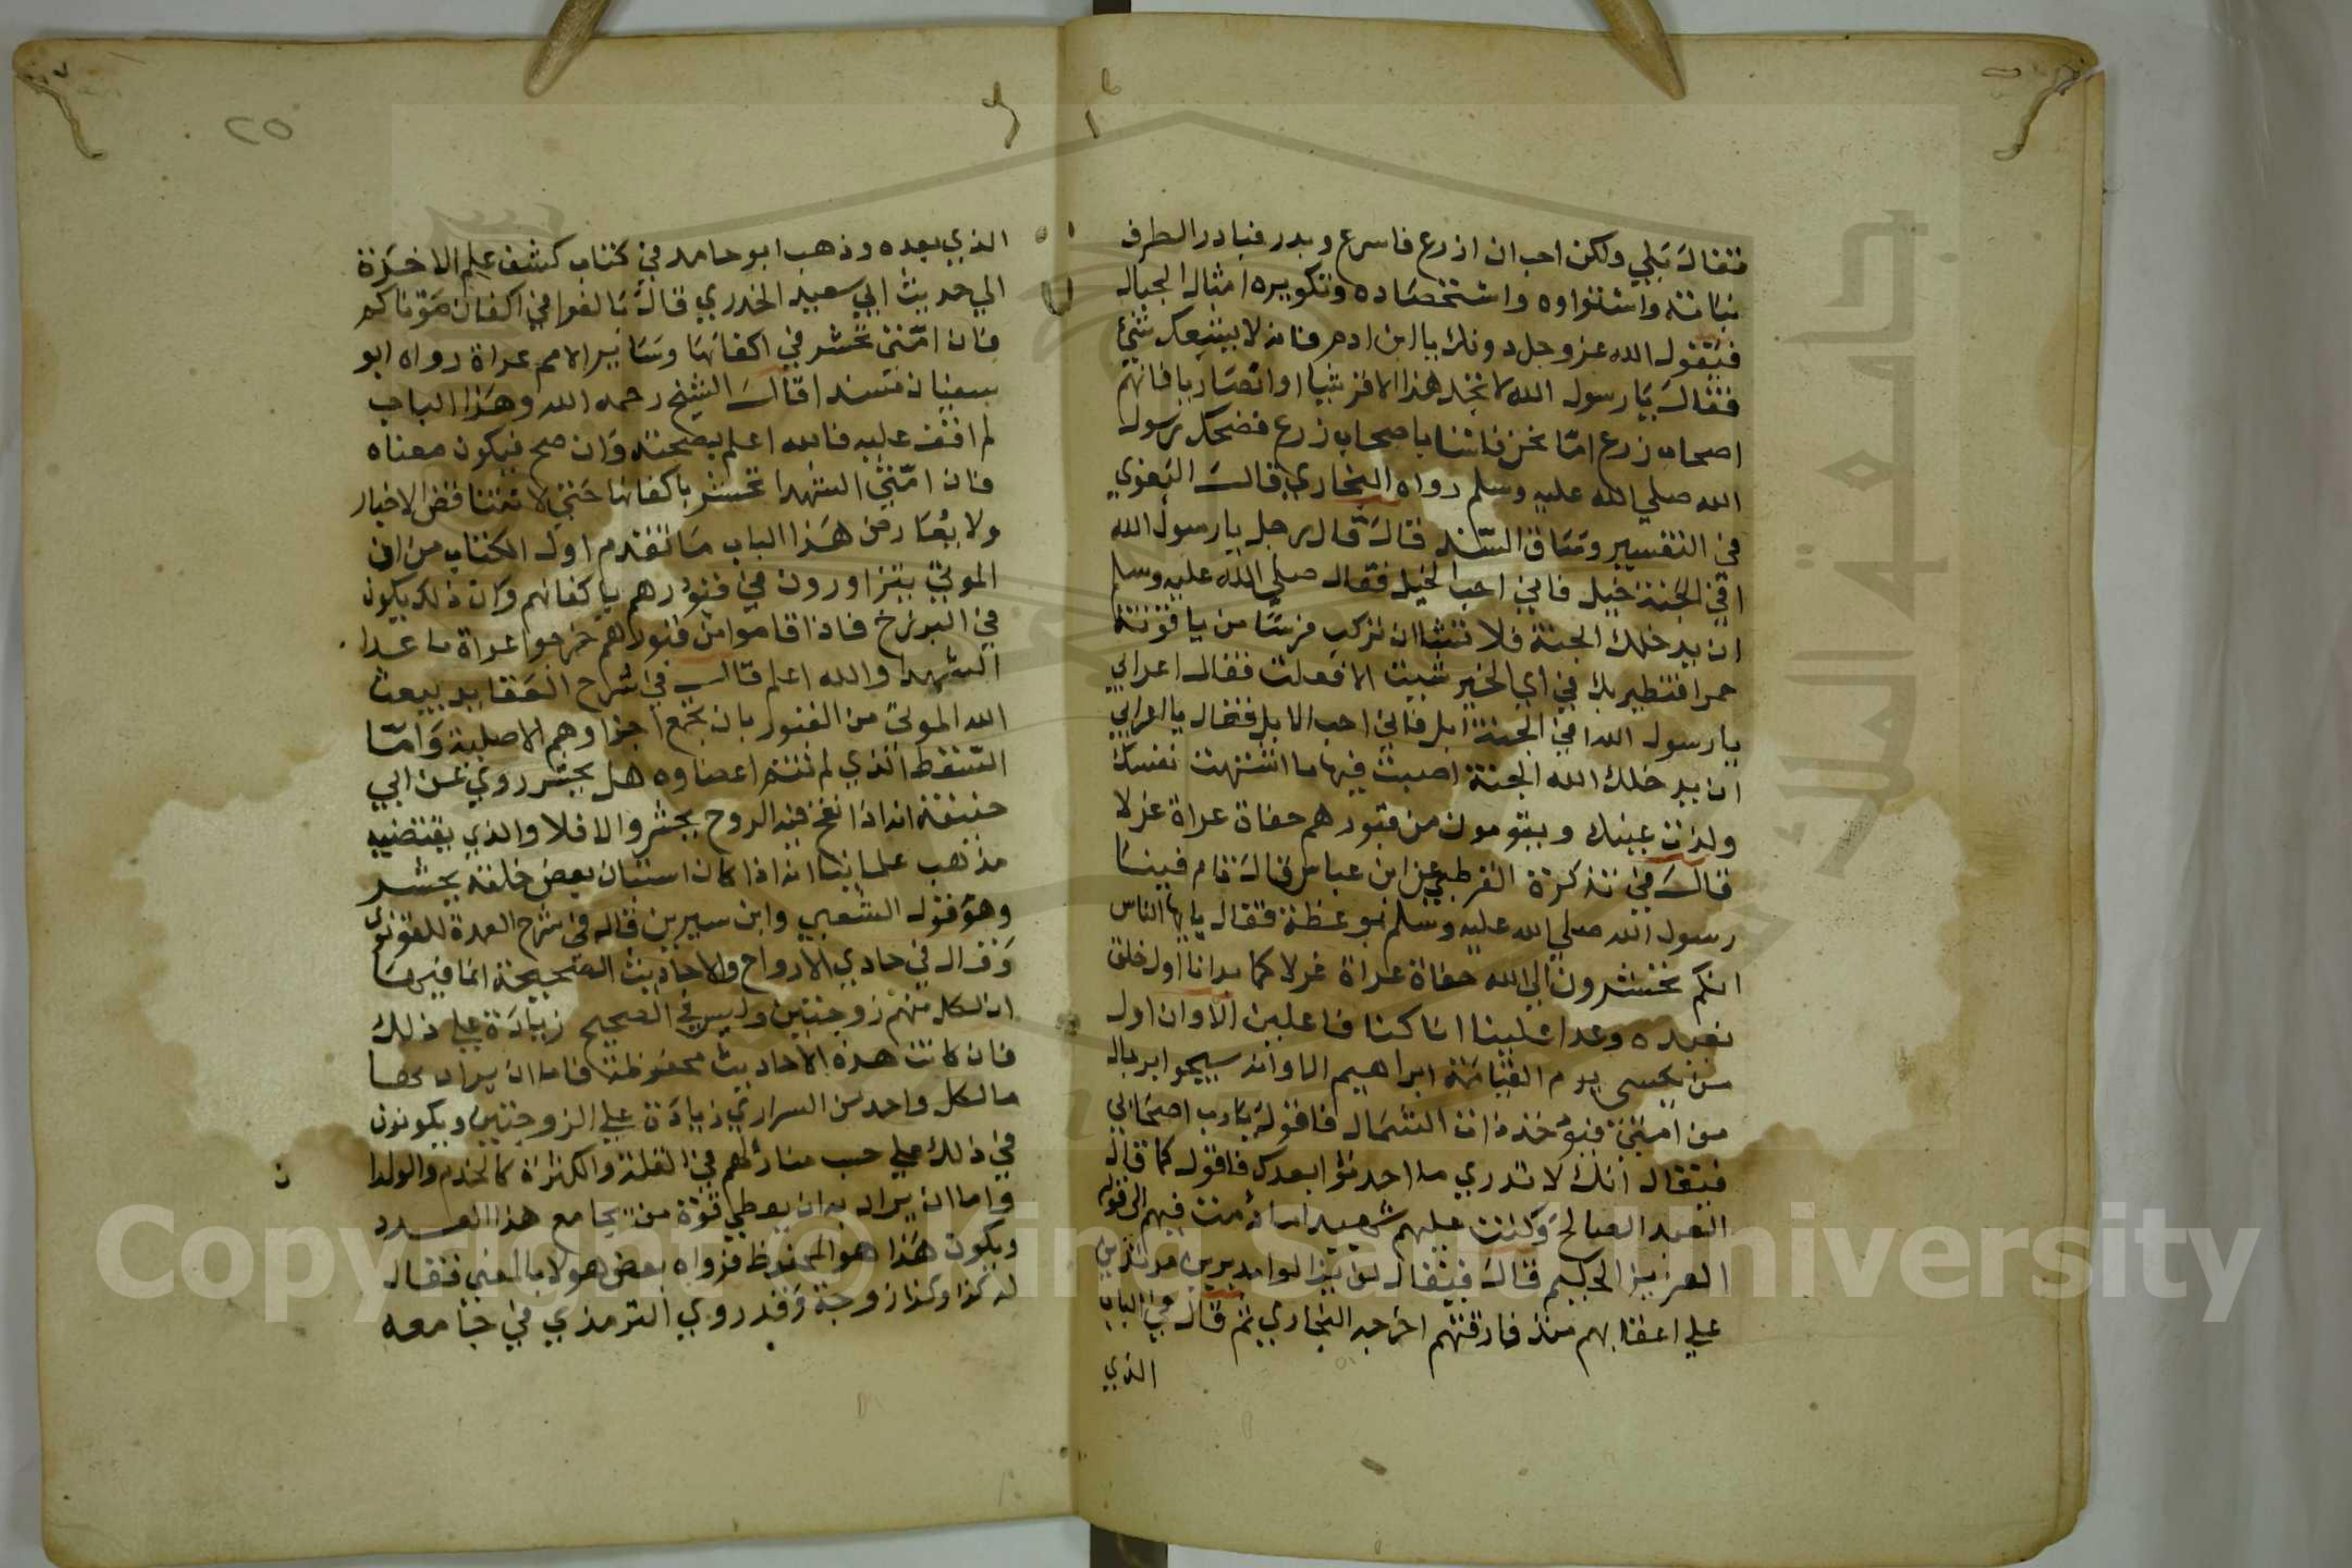 فقال بلي ولكن احب ان ازرع فاسرع وبدر فبادر الطرف
نباته واستواوه واستحصاده وتكويره امثال الجبال
فيقول الله عز وجل دونك يا ابن ادم فانه لا يشبعك شيء
فقال يا رسول الله لا تجد هذا الا قرشيا او انصاريا فانهم
اصحاب زرع امّا نحن فلسنا باصحاب زرع فضحك رسول
الله صلي الله عليه وسلم رواه البخاري قال البغوي
في التفسير وساق السند قال قال رجل يا رسول الله
افي الجنة خيل فاني احب الخيل فقال صلي الله عليه وسلم
ان يدخلك الجنة فلا تشا ان تركب فرسا من ياقوتة
حمرا فتطير بك في اي الخير شيت الا فعلت فقال اعرابي
يا رسول الله افي الجنة ابل فاني احب الابل فقال يا اعرابي
ان يدخلك الله الجنة اصبت فيها ما اشتهت نفسك
ولذت عينك ويقومون من قبورهم حفاة عراة غرلا
قال في تذكرة القرطبي عن ابن عباس قال قام فينا
رسول الله صلي الله عليه وسلم بموعظة فقال يا ايها الناس
انكم تحشرون الي الله حفاة عراة غرلا كما بدانا اول خلق
نعيده وعدا علينا انا كنا فاعلين الا وان اول
من يكسى يوم القيامة ابراهيم الا وانه سيجوا برجال
من امتي فيؤخذ ذات الشمال فاقول يا رب اصحابي
فيقال انك لا تدري ما احدثوا بعدك فاقول كما قال
العبد الصالح وكنت عليهم شهيدا ما دمت فيهم الى قوله
العزيز الحكيم قال فيقال لم يزالوا مدبرين مرتدين
علي اعقابهم منذ فارقتهم اخرجه البخاري ثم قال في الباب
الذي
٢٥
الذي بعده وذهب ابو حامد في كتاب كشف علم الاخرة
الي حديث ابي سعيد الخدري قال تالفوا في اكفان موتاكم
فان امّتي تحشر في اكفانها وساير الامم عراة رواه ابو
سفيان مسندا قال الشيخ رحمه الله وهذا الباب
لم اقف عليه فالله اعلم بصحته وان صح فيكون معناه
فان امّتي الشهدا تحشر باكفانها حتي لا تتناقض الاخبار
ولا يعارض هذا الباب ما تقدم اول الكتاب من ان
الموتي يتزاورون في قبورهم باكفانهم وان ذلك يكون
في البرزخ فاذا قاموا من قبورهم خرجوا عراة ما عدا
الشهدا والله اعلم قال في شرح العقايد يبعث
الله الموتى من القبور بان يجمع اجزاوهم الاصلية وامّا
السقط الذي لم تتم اعضاوه هل يحشر روي عن ابي
حنيفة انه اذا نفخ فيه الروح يحشر والا فلا والذي يقتضيه
مذهب علماينا انه اذا كان استبان بعض خلقه يحشر
وهو قول الشعبي وابن سيرين قاله في شرح العمدة للقونوي
وقال في حادي الارواح والاحاديث الصحيحة انما فيها
ان لكل منهم زوجتين وليس في الصحيح زيادة علي ذلك
فان كانت هذه الاحاديث محفوظة فاما ان يراد بها
ما لكل واحد من السراري زيادة علي الزوجتين ويكونون
في ذلك علي حسب منازلهم في القلة والكثرة كالخدم والولدا
ن
واما ان يراد به ان يعطي قوة من يجامع هذا العدد
ويكون هذا هو المحفوظ فرواه بعض هولا بالمعني فقال
له كذا وكذا زوجة وقد روي الترمذي في جامعه
جامعة الملك سعود
Copyright © King Saud University